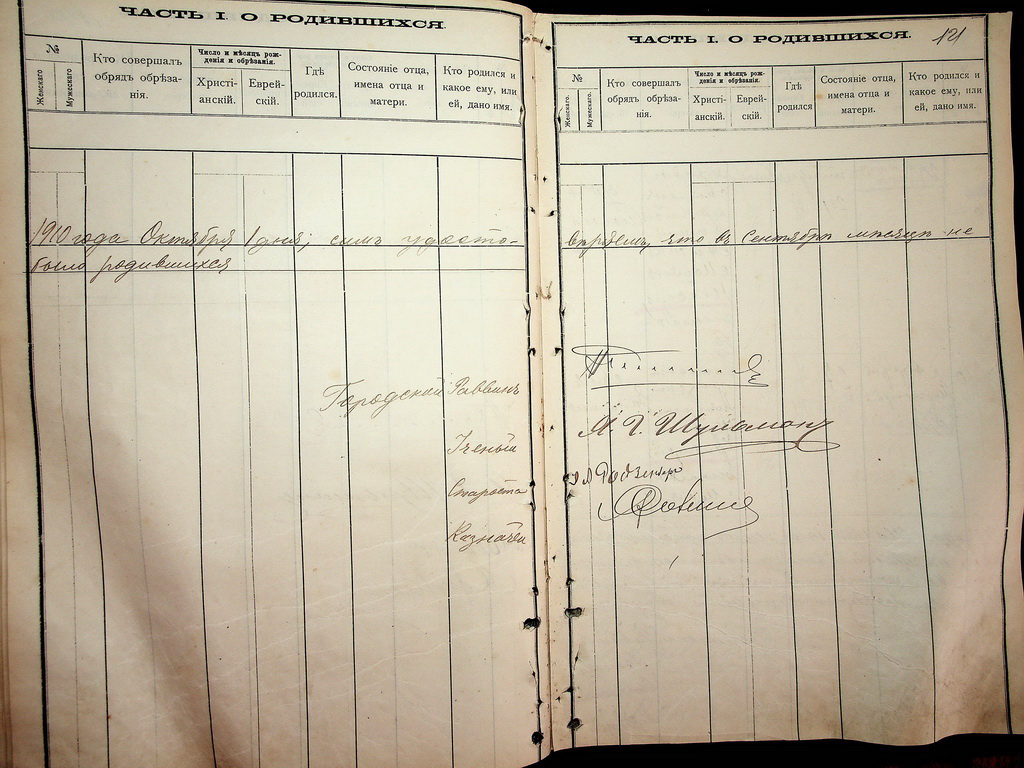 ЧАСТЬ I. О РОДИВШИХСЯ.
№
Женскаго.
Мужескаго.
Кто совершалъ обрядъ обрѣза-
нія.
Число и мѣсяцъ рож-
денія и обрѣзанія.
Христі-
анскій.
Еврей-
скій.
Гдѣ
родился.
Состояніе отца,
имена отца и
матери.
Кто родился и
какое ему, или
ей, дано имя.
1910 года Октября 1 дня, симъ удосто-
было родившихся
Городской Раввинъ
Ученый
Староста
Казначей
ЧАСТЬ I. О РОДИВШИХСЯ.
121
№
Женскаго.
Мужескаго.
Кто совершалъ
обрядъ обрѣза-
нія.
Число и мѣсяцъ рож-
денія и обрѣзанія.
Христі-
анскій.
Еврей-
скій.
Гдѣ
родился
Состояніе отца,
имена отца и
матери.
Кто родился и
какое ему, или
ей, дано имя.
вѣряемъ, что въ Сентябрѣ мѣсяцѣ не
Шульманъ